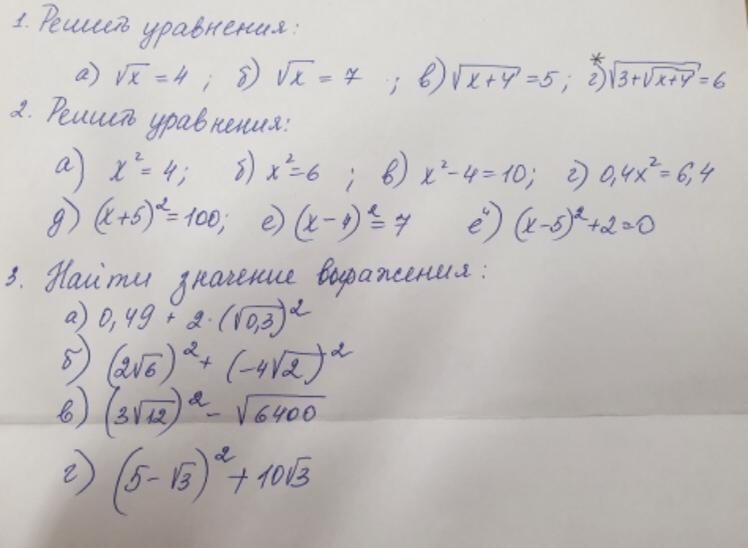 1. Решить уравнения:
а) √x = 4 ; б) √x = 7 ; в) √(x+4) = 5 ; *г) √(3+√(x+4)) = 6
2. Решить уравнения:
а) x² = 4; б) x² = 6 ; в) x² - 4 = 10; г) 0,4x² = 6,4
д) (x+5)² = 100; е) (x-4)² = 7 ё) (x-5)² + 2 = 0
3. Найти значение выражения:
а) 0,49 + 2·(√0,3)²
б) (2√6)² + (-4√2)²
в) (3√12)² - √6400
г) (5-√3)² + 10√3